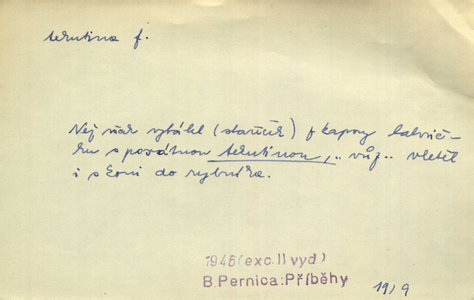 tekutina f.
Než však vytáhl (stařeček) z kapsy lahvič-
ku s posvátnou tekutinou, .. vůz .. vletěl
i s koni do rybníka.
1946 (exc. II vyd)
B. Pernica: Příběhy
19/9